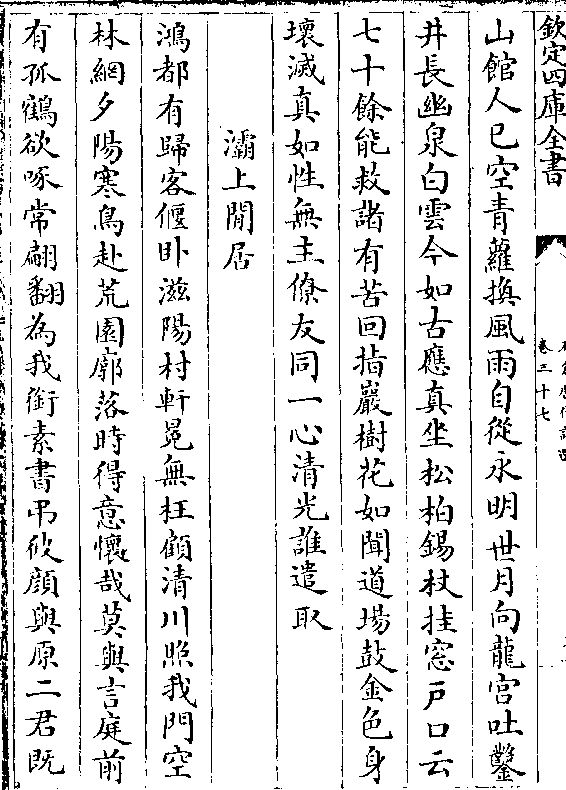 欽定四庫全書
卷三十七
山館人已空青蘿換風雨自從永明世月向龍宮吐鑿
井長幽泉白雲今如古應真坐松柏錫杖挂窓戸口云
七十餘能救諸有苦回指巖樹花如聞道塲鼓金色身
壊滅真如性無主僚友同一心清光誰遣取
灞上閒居
鴻都有歸客偃卧滋陽村軒冕無枉顧清川照我門空
林網夕陽寒鳥赴荒園廓落時得意懷哉莫與言庭前
有孤鶴欲啄常翩翻為我銜素書弔彼顔與原二君既